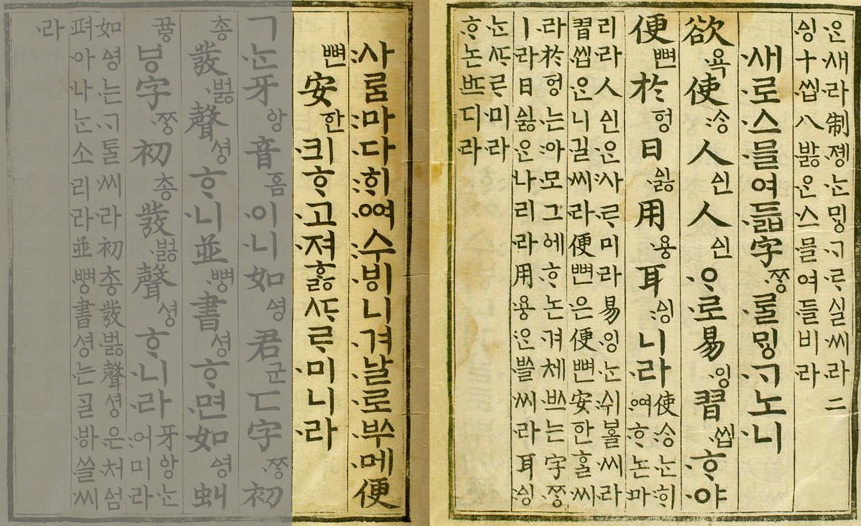 ᄋᆞᆫ새라制졩ᄂᆞᆫᄆᆡᇰᄀᆞᄅᆞ실씨라二
ᅀᅵᆼ十씹八바ᇙᄋᆞᆫ스믈여들비라
새로스믈여듧字ᄍᆞᆼᄅᆞᆯᄆᆡᇰᄀᆞ노니
欲욕使ᄉᆞᆼ人ᅀᅵᆫ人ᅀᅵᆫᄋᆞ로易잉習씹ᄒᆞ야
便뼌於ᅙᅥᆼ日ᅀᅵᇙ用용耳ᅀᅵᆼ니라
使ᄉᆞᆼᄂᆞᆫᄒᆡ
ᅇᅧᄒᆞ논마
리라人ᅀᅵᆫᄋᆞᆫ사ᄅᆞ미라易잉ᄂᆞᆫ쉬ᄫᅳᆯ씨라
習씹은니길씨라便뼌은便뼌安ᅙᅡᆫᄒᆞᆯ씨
라於ᅙᅥᆼ는아모그에ᄒᆞ논겨체ᄡᅳ는字ᄍᆞᆼ
ㅣ라日ᅀᅵᇙᄋᆞᆫ나리라用용ᄋᆞᆫᄡᅳᆯ씨라耳ᅀᅵᆼ
ᄂᆞᆫᄯᆞᄅᆞ미라
ᄒᆞ논ᄠᅳ디라
사ᄅᆞᆷ마다ᄒᆡᅇᅧ수ᄫᅵ니겨날로ᄡᅮ메便
뼌安ᅙᅡᆫ킈ᄒᆞ고져ᄒᆞᇙᄯᆞᄅᆞ미니라
ㄱᄂᆞᆫ牙ᅌᅡᆼ音ᅙᅳᆷ이니如ᅀᅧᆼ君군ㄷ字ᄍᆞᆼ初
총發벓聲셩ᄒᆞ니並뼝書셩ᄒᆞ면如ᅀᅧᆼ虯
뀨ᇢㅸ字ᄍᆞᆼ初총發벓聲셩ᄒᆞ니라
牙ᅌᅡᆼᄂᆞᆫ
어미라
如ᅀᅧᆼ는ᄀᆞᄐᆞᆯ씨라初총發벓聲셩은처ᅀᅥᆷ
펴아나ᄂᆞᆫ소리라並뼝書셩는ᄀᆞᆯᄫᅡ쓸씨
라